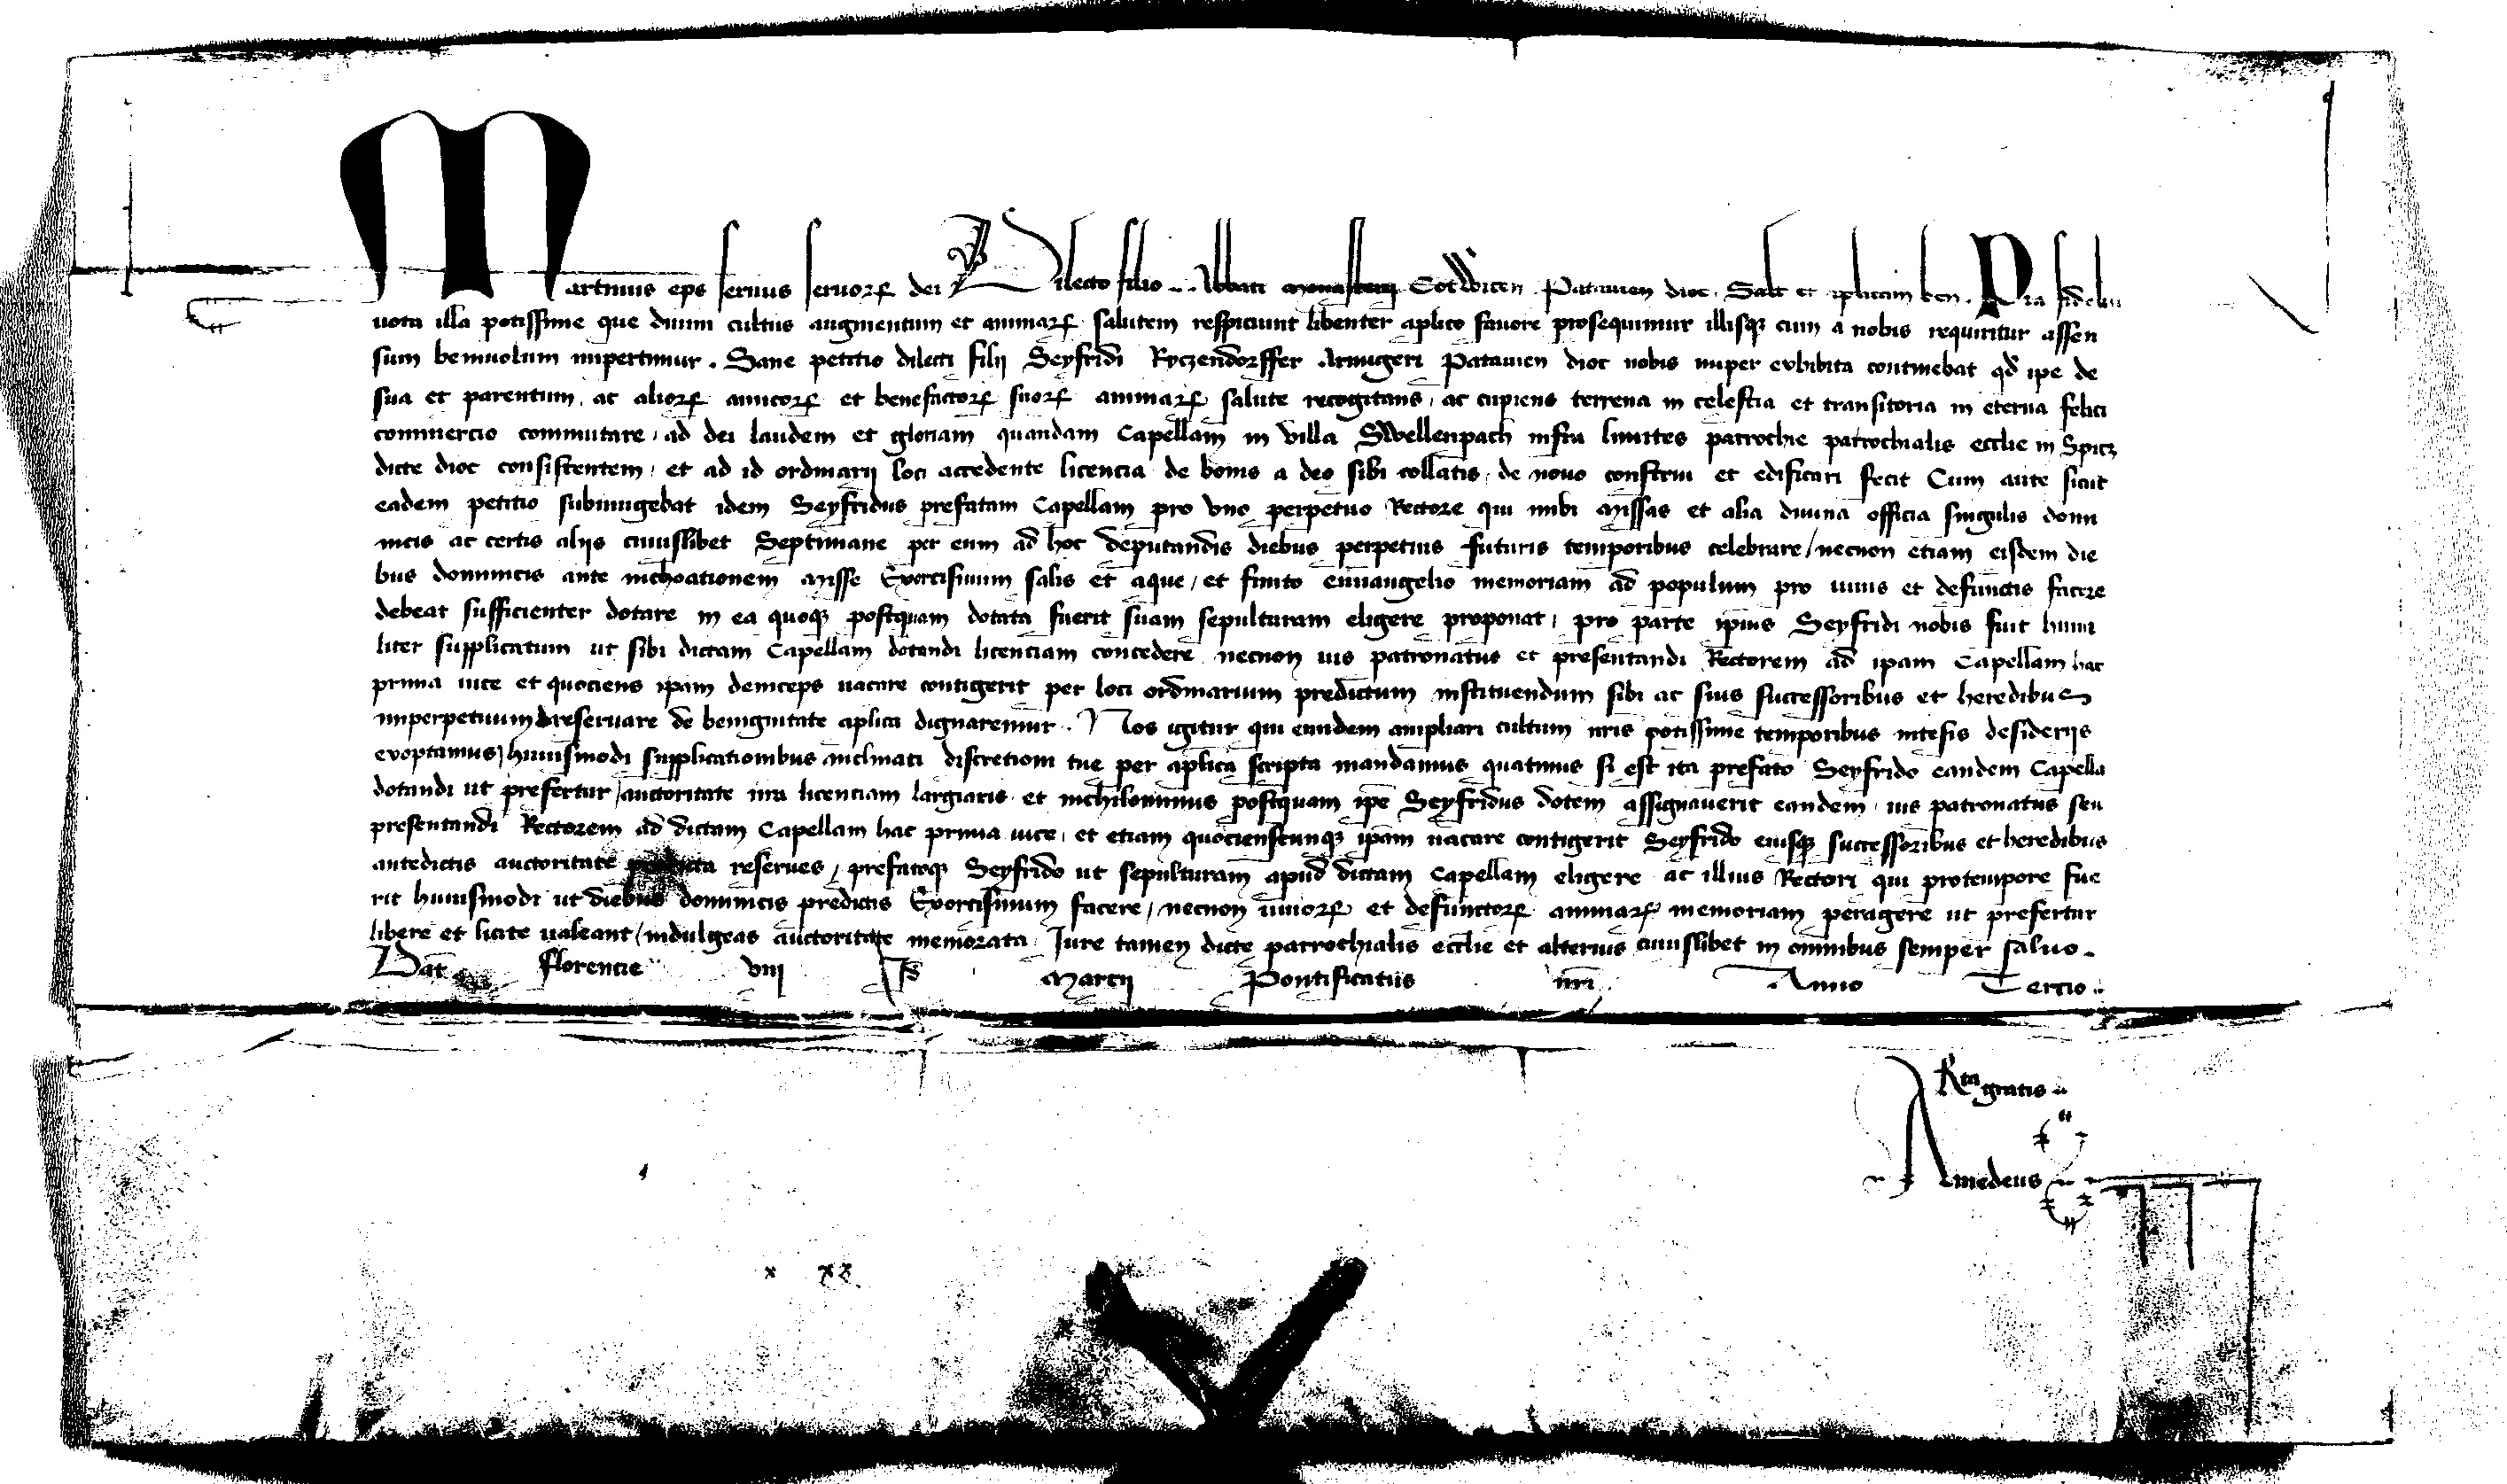 Martinus eps seruus seruoꝝ dei Dilecto filio .. Abbati Monasterij Cotwicen Patauien dioc. Salt et aplicam ben. Pia fideliu
uota illa potissime que diuini cultus augmentum et animaꝝ salutem respiciunt libenter aplico fauore prosequimur illisqꝫ cum a nobis requiritur assen
sum beniuolum impertimur. Sane petitio dilecti filij Seyfridi Ryczendorffer Armigeri Patauien dioc nobis nuper exhibita continebat qd ipe de
sua et parentum, ac alioꝝ amicoꝝ et benefactoꝝ suoꝝ animaꝝ salute recogitans, ac cupiens terrena in celestia et transitoria in eterna felici
commercio commutare, ad dei laudem et gloriam quandam Capellam in villa Swellenpach infra limites parrochie parrochialis ecclie in Spicz
dicte dioc consistentem, et ad id ordinarij loci accedente licencia de bonis a deo sibi collatis, de nouo construi et edificari fecit Cum aute sicut
eadem petitio subiungebat idem Seyfridus prefatam Capellam pro vno perpetuo Rectore qui inibi missas et alia diuina officia singulis domi
nicis ac certis alijs cuiuslibet Septimane per eum ad hoc deputandis diebus perpetuis futuris temporibus celebrare/necnon etiam eisdem die
bus dominicis ante inchoationem Misse Exorcismum salis et aque, et finito euuangelio memoriam ad populum pro uiuis et defunctis facere
debeat sufficienter dotare in ea quoqꝫ postquam dotata fuerit suam sepulturam eligere proponat, pro parte ipius Seyfridi nobis fuit humi
liter supplicatum ut sibi dictam Capellam dotandi licentiam concedere necnon ius patronatus et presentandi Rectorem ad ipam Capellam hac
prima uice et quociens ipam deinceps uacare contigerit per loci ordinarium predictum instituendum sibi ac suis successoribus et heredibus
imperpetuum reseruare de benignitate aplica dignaremur. Nos igitur qui eundem ampliari cultum nris potissime temporibus intensis desiderijs
exoptamus, huiusmodi supplicationibus inclinati discretioni tue per aplica scripta mandamus quatinus si est ita prefato Seyfrido eandem Capella
dotandi ut prefertur/auctoritate nra licentiam largiaris. et nichilominus postquam ipe Seyfridus dotem assignauerit eandem, ius patronatus seu
presentandi Rectorem ad dictam Capellam hac prima uice, et etiam quocienscunqꝫ ipam uacare contigerit Seyfrido eiusqꝫ successoribus et heredibus
antedictis auctoritate reserues, prefatoqꝫ Seyfrido ut sepulturam apud dictam Capellam eligere ac illius Rectori qui protempore fue
rit huiusmodi ut diebus dominicis predictis Exorcismum facere, necnon uiuoꝝ et defunctoꝝ animaꝝ memoriam peragere ut prefertur
libere et licite ualeant/indulgeas auctoritate memorata. Iure tamen dicte parrochialis ecclie et alterius cuiuslibet in omnibus semper saluo.
Dat Florentie viij Marcij Pontificatus nri Anno Tercio..
Rta gratis..
Amedeus
x xz